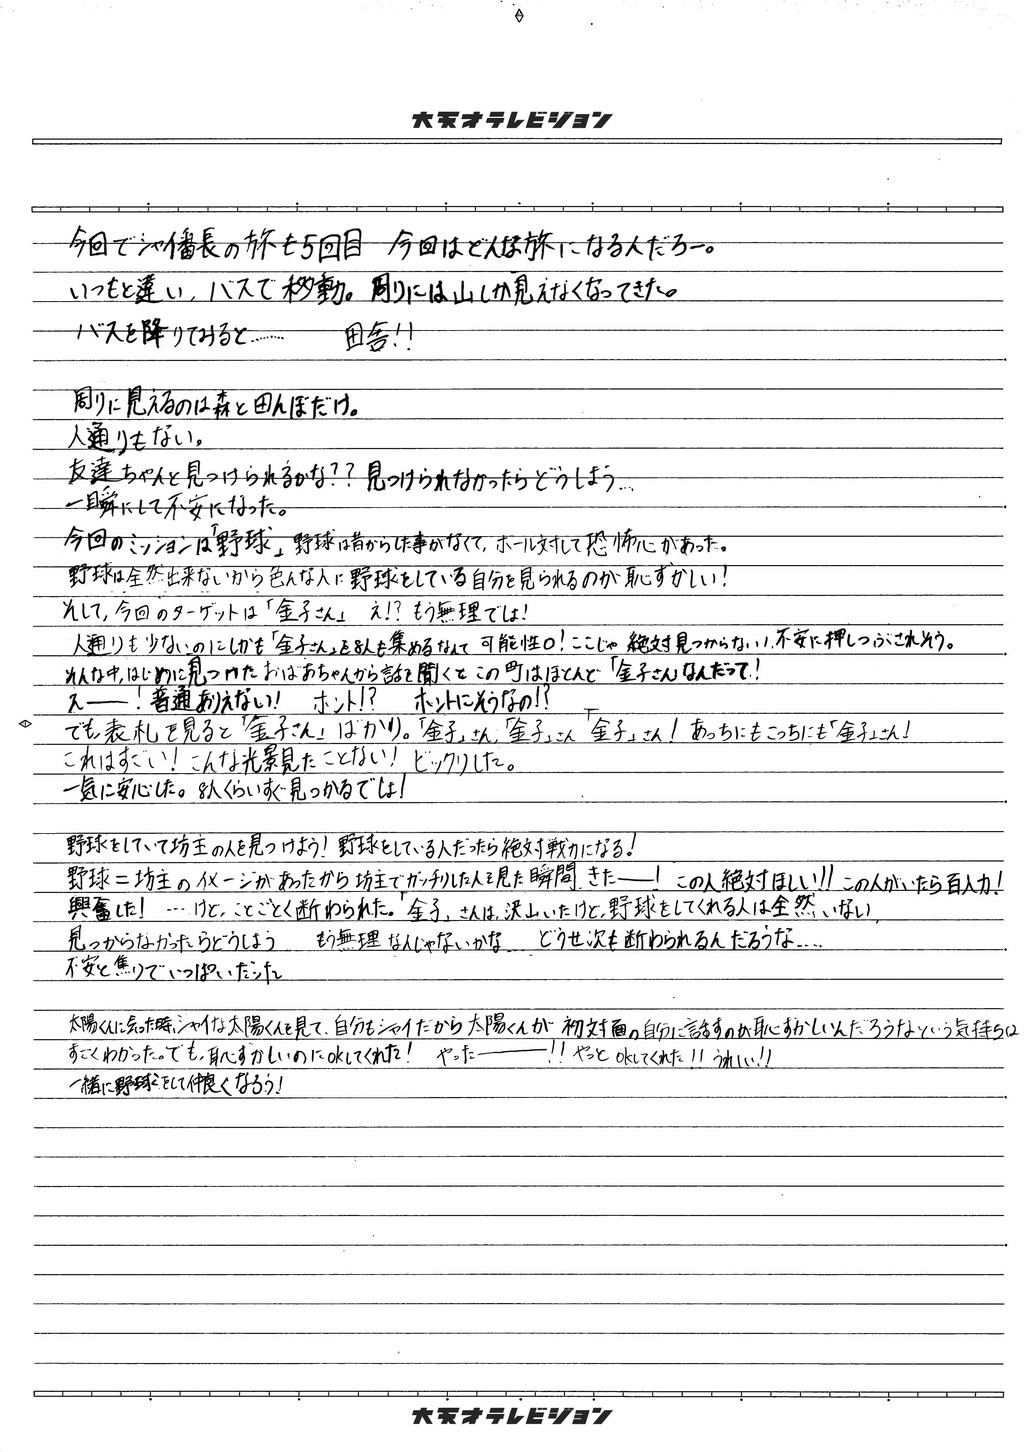 大天才テレビジョン
今回でシャイ番長の旅も5回目 今回はどんな旅になるんだろー。
いつもと違い、バスで移動。周りには山しか見えなくなってきた。
バスを降りてみると……… 田舎!!
周りに見えるのは森と田んぼだけ。
人通りもない。
友達ちゃんと見つけられるかな??見つけられなかったらどうしよう…
一瞬にして不安になった。
今回のミッションは「野球」野球は昔からした事がなくて、ボール対して恐怖心があった。
野球は全然出来ないから色んな人に野球をしている自分を見られるのが恥ずかしい!
そして、今回のターゲットは「金子さん」 え!?もう無理では!
人通りも少ないのにしかも「金子さん」を8人も集めるなんて可能性0!ここじゃ絶対見つからない!不安に押しつぶされそう。
そんな中、はじめに見つけたおばあちゃんから話を聞くとこの町はほとんど「金子さんなんだって!
え――!普通ありえない! ホント!? ホントにそうなの!?
でも表札を見ると「金子さん」ばかり。「金子」さん「金子」さん「金子」さん!あっちにもこっちにも「金子」さん!
これはすごい!こんな光景見たことない!ビックリした。
一気に安心した。8人くらいすぐ見つかるでは!
野球をしていて坊主の人を見つけよう!野球をしている人だったら絶対戦力になる!
野球=坊主のイメージがあったから坊主でガッチリした人を見た瞬間きた――!この人絶対ほしい!!この人がいたら百人力!
興奮した! …けど、ことごとく断わられた。「金子」さんは、沢山いたけど、野球をしてくれる人は全然いない
見つからなかったらどうしよう もう無理なんじゃないかな どうせ次も断わられるんだろうな…
不安と焦りでいっぱいだった
太陽くんに会った時、シャイな太陽くんを見て、自分もシャイだから太陽くんが初対面の自分に話すのが恥ずかしいんだろうなという気持ちは
すごくわかった。でも、恥ずかしいのにOKしてくれた! やった―――!!やっとOKしてくれた!!うれしい!!
一緒に野球をして仲良くなろう!
大天才テレビジョン